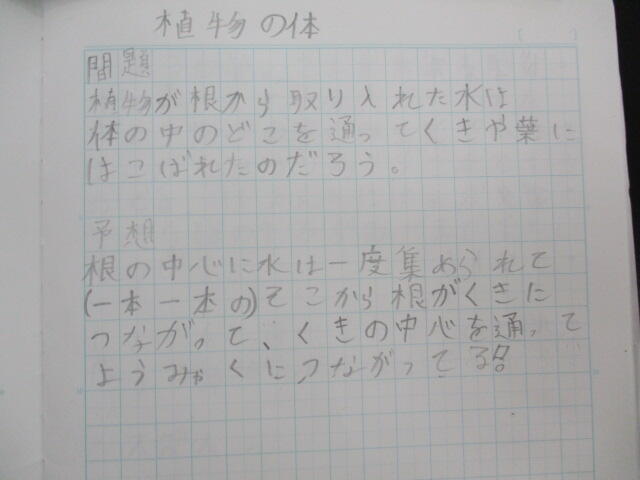 植物の体
問題
植物が根から取り入れた水は
体の中のどこを通ってくきや葉に
はこばれたのだろう。
予想
根の中心に水は一度集められて
(一本一本の)そこから根がくきに
つながって、くきの中心を通って
ようみゃくにつながってる?